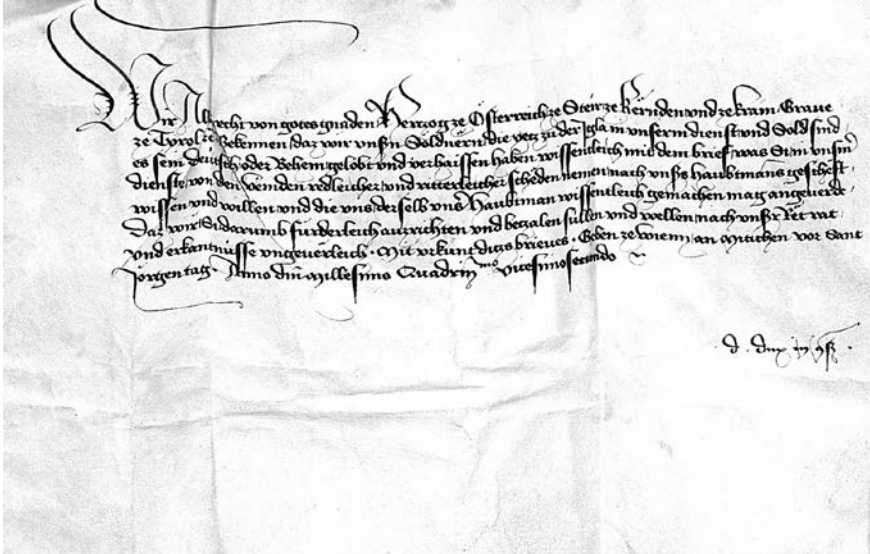 Wir Albrecht von gotes gnaden Herczog ze Österreich ze Steir ze Kernden und ze Krain Grave
ze Tyrol ze Bekennen daz wir unsern Söldnern die yecz zu der Igla in unserm dienst und Sold sind
es sein deutsch oder Behem gelobt und verhaissen haben wissentlich mit dem brief was Si in unserm
dienste von den veinden redleicher und ritterleicher scheden nemen nach unsers haubtmans gescheft
wissen und willen und die uns derselb unser Haubtman wissentleich gemachen mag angeverde
Daz wir Si darumb furderleich ausrichten und beczalen sullen und wellen nach unser Ret rat
und erkantnüsse ungeverleich. Mit urkunt diczs brieves. Geben ze Wienn an Mitichen vor Sant
Jörgen tag. Anno dni Millesimo Quadrin mo vicesimosecundo
d. dux in